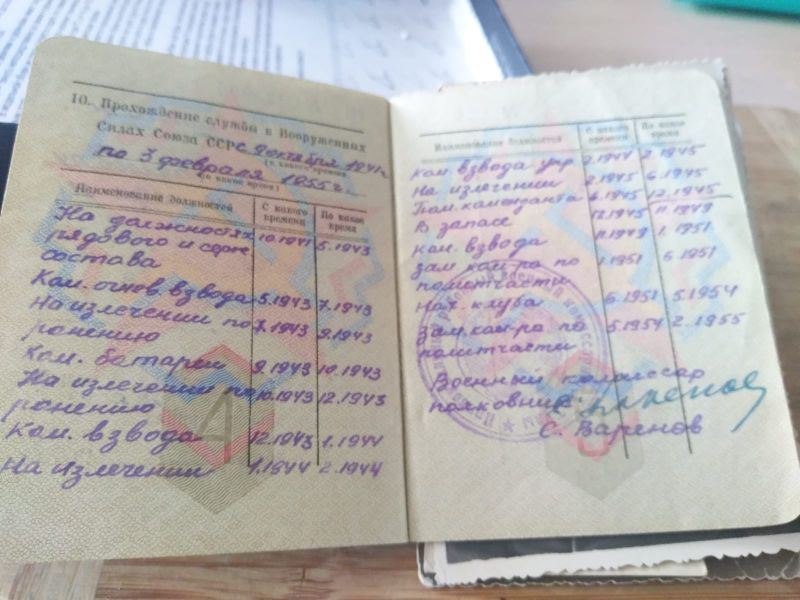 10. Прохождение службы в Вооруженных
Силах Союза ССР с 9 октября 1941 г.
(с какого времени)
по 3 февраля 1955 г.
(по какое время)
Наименование должностей С какого времени По какое время
На должностях
рядового и серж 10.1941 5.1943
состава
Ком. огнев взвода 5.1943 7.1943
На излечении по 7.1943 9.1943
ронению
Ком. батареи 9.1943 10.1943
На излечении по 10.1943 12.1943
ронению
Ком. взвода 12.1943 1.1944
На излечении 1.1944 2.1944
Наименование должностей С какого времени По какое время
Ком взвода упр 2.1944 2.1945
На излечении 2.1945 6.1945
Пом. коменданта 6.1945 12.1945
В запасе 12.1945 11.1949
Ком. взвода 11.1949 1.1951
Зам ком-ра по 1.1951 6.1951
политчасти
Нач. клуба 6.1951 5.1954
Зам. ком-ра по 5.1954 2.1955
политчасти
Военный комиссар
полковник
С. Варенов